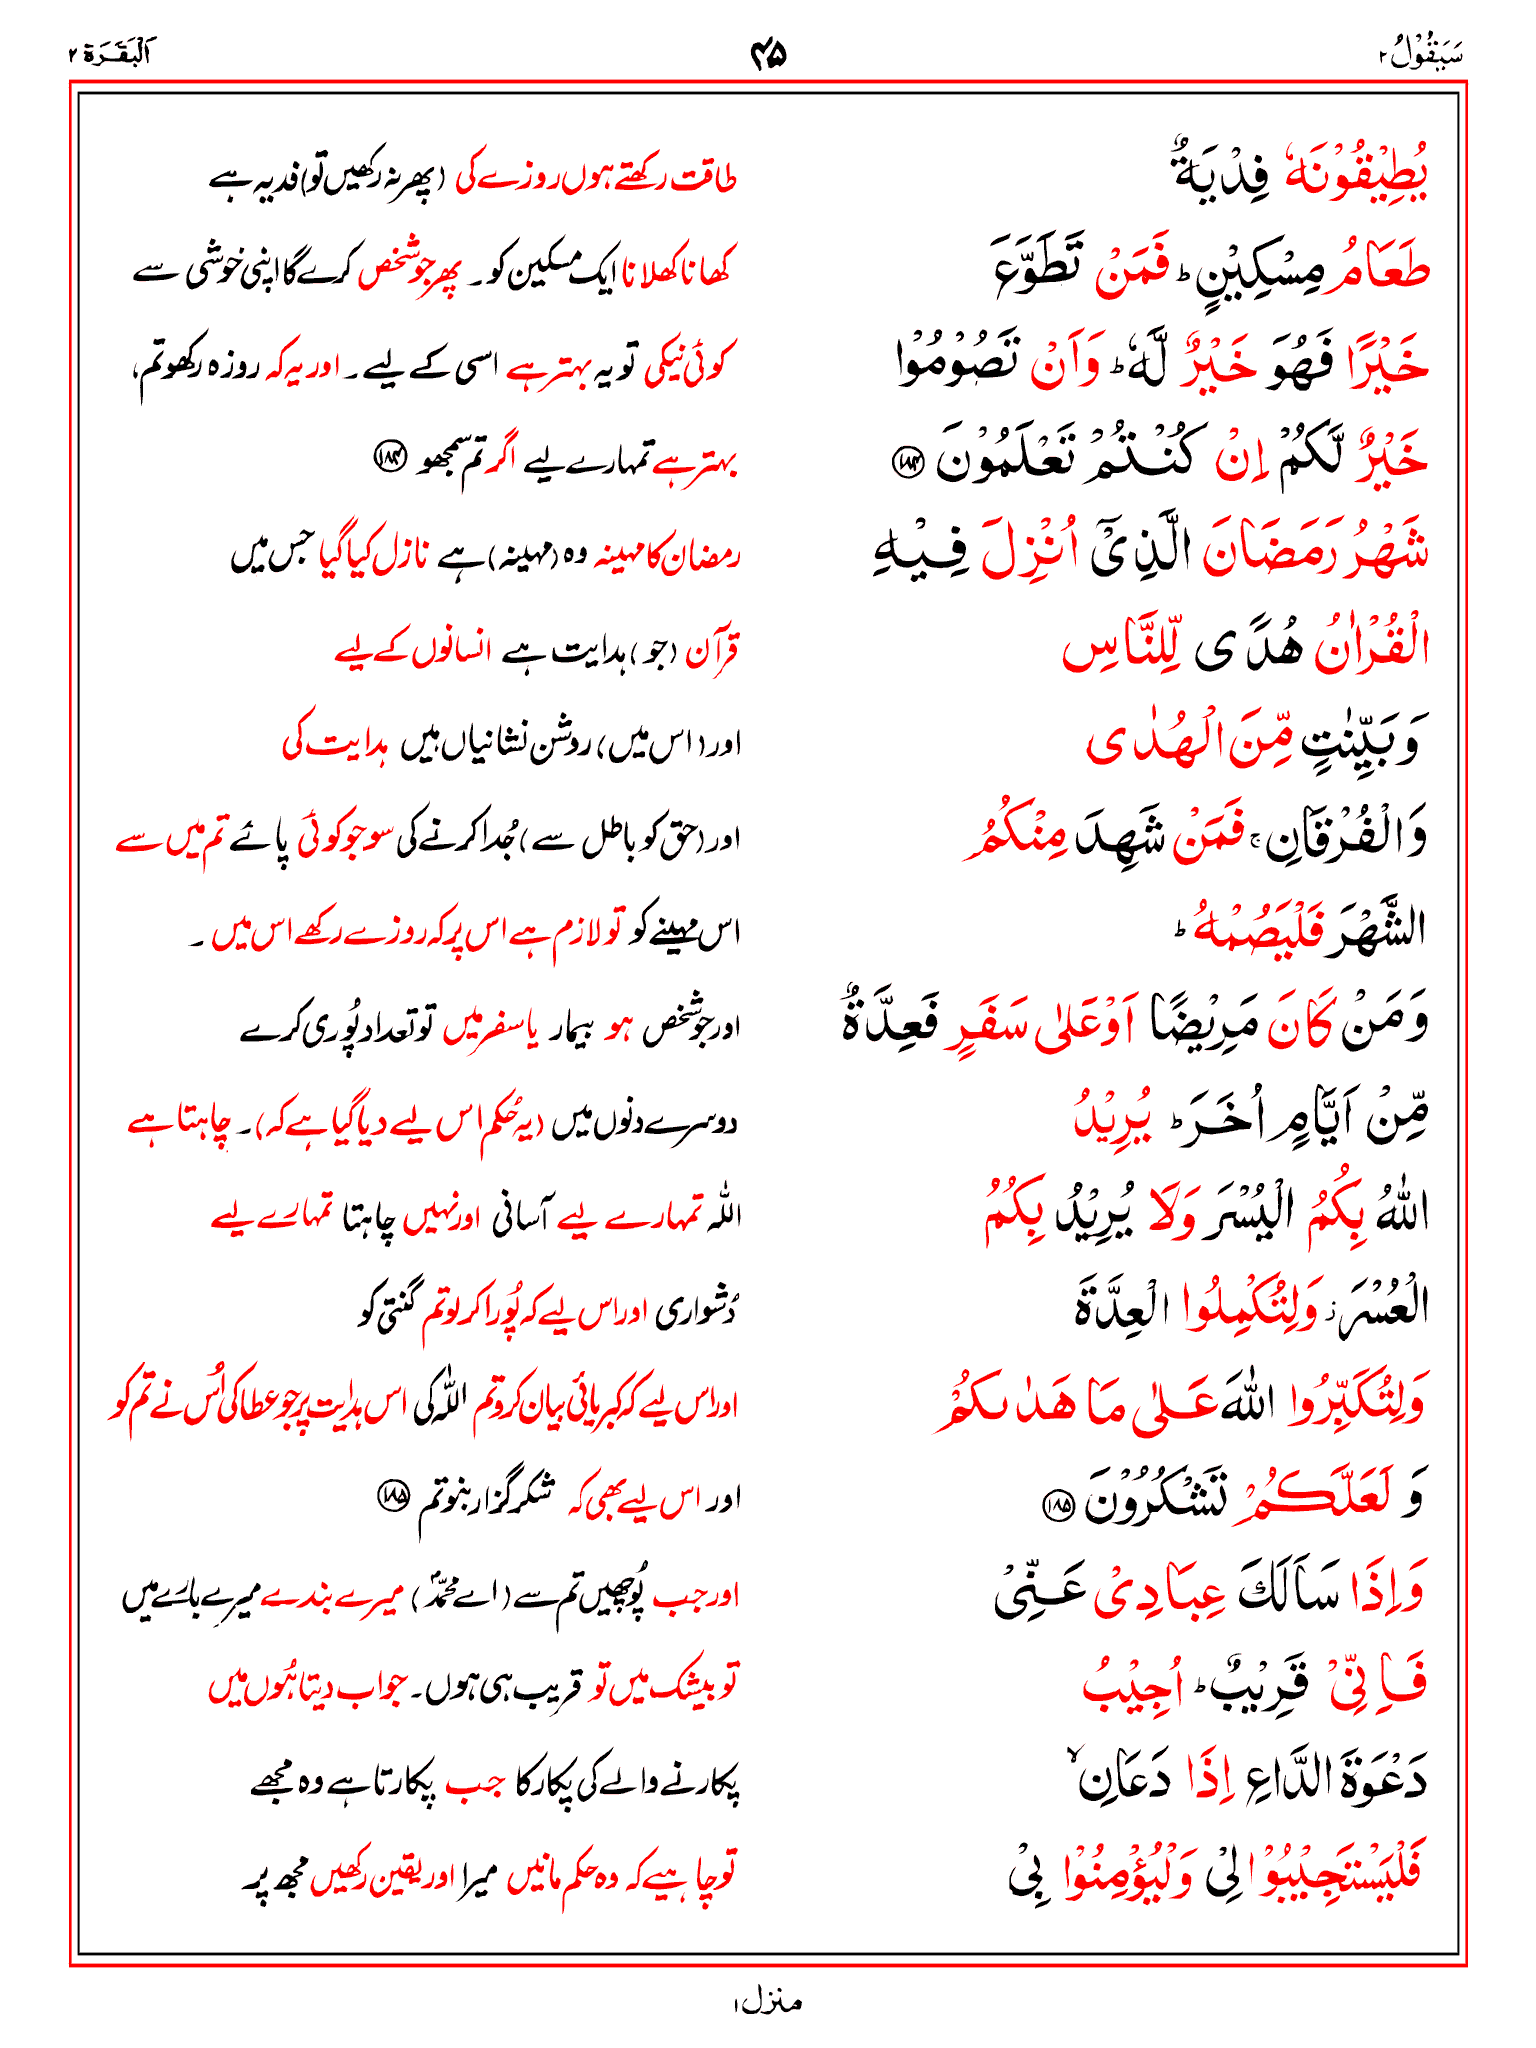 سَيَقُوْلُ ٢ ۴۵ اَلْبَقَرَة ٢
يُطِيْقُوْنَهٗ فِدْيَةٌ طاقت رکھتے ہوں روزے کی (پھر نہ رکھیں تو) فدیہ ہے
طَعَامُ مِسْكِيْنٍ ؕ فَمَنْ تَطَوَّعَ کھانا کھلانا ایک مسکین کو۔ پھر جو شخص کرے گا اپنی خوشی سے
خَيْرًا فَهُوَ خَيْرٌ لَّهٗ ؕ وَاَنْ تَصُوْمُوْا کوئی نیکی تو یہ بہتر ہے اسی کے لیے۔ اور یہ کہ روزہ رکھو تم،
خَيْرٌ لَّكُمْ اِنْ كُنْتُمْ تَعْلَمُوْنَ ﴿۱۸۴﴾ بہتر ہے تمہارے لیے اگر تم سمجھو ﴿۱۸۴﴾
شَهْرُ رَمَضَانَ الَّذِيْٓ اُنْزِلَ فِيْهِ رمضان کا مہینہ وہ (مہینہ) ہے نازل کیا گیا جس میں
الْقُرْاٰنُ هُدًى لِّلنَّاسِ قرآن (جو) ہدایت ہے انسانوں کے لیے
وَبَيِّنٰتٍ مِّنَ الْهُدٰى اور (اس میں) روشن نشانیاں ہیں ہدایت کی
وَالْفُرْقَانِ ۚ فَمَنْ شَهِدَ مِنْكُمُ اور (حق کو باطل سے) جُدا کرنے کی سو جو کوئی پائے تم میں سے
الشَّهْرَ فَلْيَصُمْهُ ؕ اس مہینے کو تو لازم ہے اس پر کہ روزے رکھے اس میں۔
وَمَنْ كَانَ مَرِيْضًا اَوْ عَلٰى سَفَرٍ فَعِدَّةٌ اور جو شخص ہو بیمار یا سفر میں تو تعداد پُوری کرے
مِّنْ اَيَّامٍ اُخَرَ ؕ يُرِيْدُ دوسرے دنوں میں (یہ حُکم اس لیے دیا گیا ہے کہ)۔ چاہتا ہے
اللّٰهُ بِكُمُ الْيُسْرَ وَلَا يُرِيْدُ بِكُمُ اللہ تمہارے لیے آسانی اور نہیں چاہتا تمہارے لیے
الْعُسْرَ ۡ وَلِتُكْمِلُوا الْعِدَّةَ دُشواری اور اس لیے کہ پُورا کر لو تم گنتی کو
وَلِتُكَبِّرُوا اللّٰهَ عَلٰى مَا هَدٰىكُمْ اور اس لیے کہ کبریائی بیان کرو تم اللہ کی اس ہدایت پر جو عطا کی اُس نے تم کو
وَ لَعَلَّكُمْ تَشْكُرُوْنَ ﴿۱۸۵﴾ اور اس لیے بھی کہ شکر گزار بنو تم ﴿۱۸۵﴾
وَاِذَا سَاَلَكَ عِبَادِيْ عَنِّيْ اور جب پُوچھیں تم سے (اے محمدؐ) میرے بندے میرے بارے میں
فَاِنِّيْ قَرِيْبٌ ؕ اُجِيْبُ تو بیشک میں تو قریب ہی ہوں۔ جواب دیتا ہُوں میں
دَعْوَةَ الدَّاعِ اِذَا دَعَانِ ۙ پکارنے والے کی پکار کا جب پکارتا ہے وہ مجھے
فَلْيَسْتَجِيْبُوْا لِيْ وَلْيُؤْمِنُوْا بِيْ تو چاہیے کہ وہ حکم مانیں میرا اور یقین رکھیں مجھ پر
منزل ۱